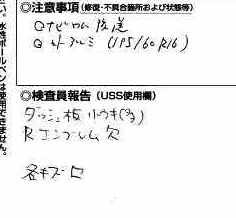 ◎注意事項(修復・不具合箇所および状態等)
Q ナビロム 後送
Q 社外アルミ (195/60R16)
◎検査員報告 (USS使用欄)
ダッシュ板 小ウキ(多)
Rエンブレム欠
各キズ凹
い。水性ボールペンは使用できません。